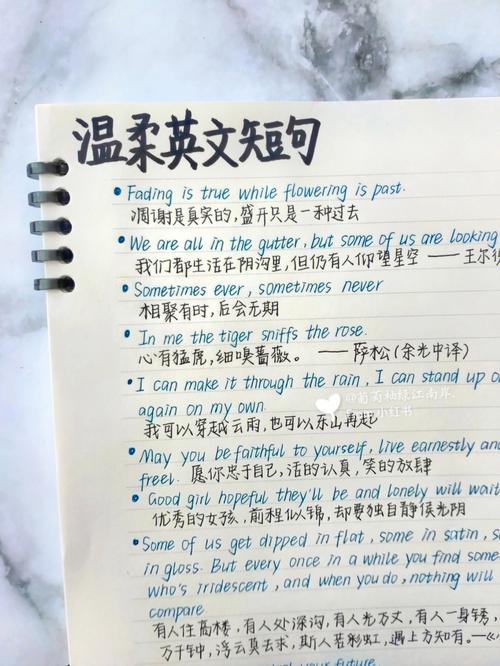 温柔英文短句
Fading is true while flowering is past.
凋谢是真实的,盛开只是一种过去
We are all in the gutter, but some of us are looking
我们都生活在阴沟里,但仍有人仰望星空 —— 王尔德
Sometimes ever, sometimes never
相聚有时,后会无期
In me the tiger sniffs the rose.
心有猛虎,细嗅蔷薇。 —— 萨松(余光中译)
I can make it through the rain, I can stand up
again on my own.
我可以穿越云雨,也可以东山再起
May you be faithful to yourself, live earnestly and
freel. 愿你忠于自己,活的认真,笑的放肆
Good girl hopeful they'll be and lonely will wait
优秀的女孩,前程似锦,却要独自静候光阴
Some of us get dipped in flat, some in satin,
in gloss. But every once in a while you find
who's iridescent, and when you do, nothing will
compare
有人住高楼,有人处深沟,有人光万丈,有人一身锈,
万千钟,浮云莫去求,斯人若彩虹,遇上方知有。
your future.
小红书